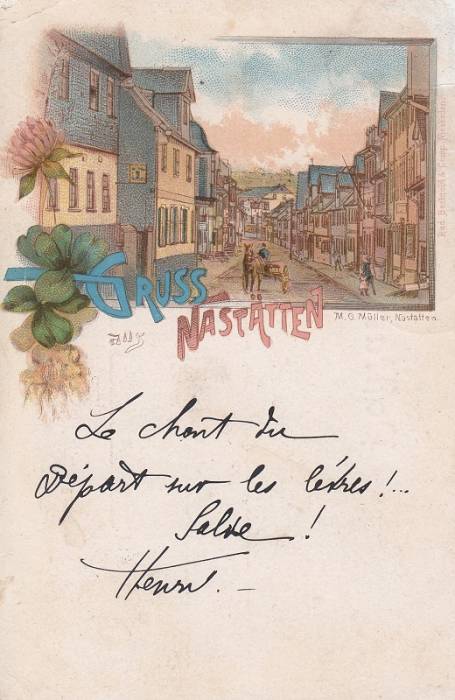 GRUSS
aus
NASTÄTTEN
M. G. Müller, Nastätten.
Le chant du
Départ sur les lèvres !...
Salve !
Henri. –